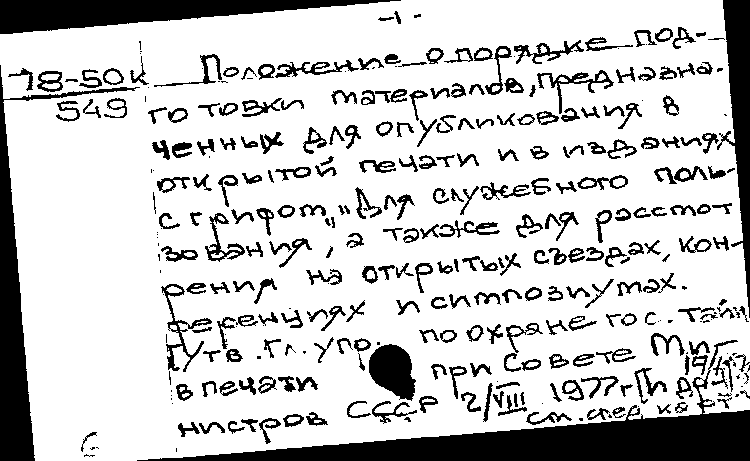 -1-
78-50к
549
Положение о порядке под-
готовки материалов, предназна-
ченных для опубликования в
открытой печати и в изданиях
с грифом „Для служебного поль-
зования", а также для рассмот
рения на открытых съездах, кон-
ференциях и симпозиумах.
[Утв. Гл. упр. по охране гос. тайн
в печати при Совете Ми-
нистров СССР 2/VIII 1977г [и др.]
см. след карт
6